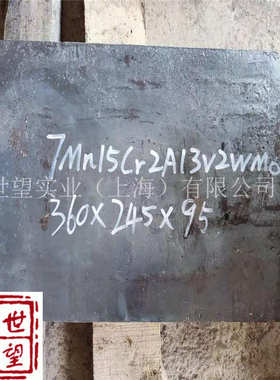 7Mn15Cr2Al3V2WMo
世望实业（上海）有限公司
360×245×95
世望